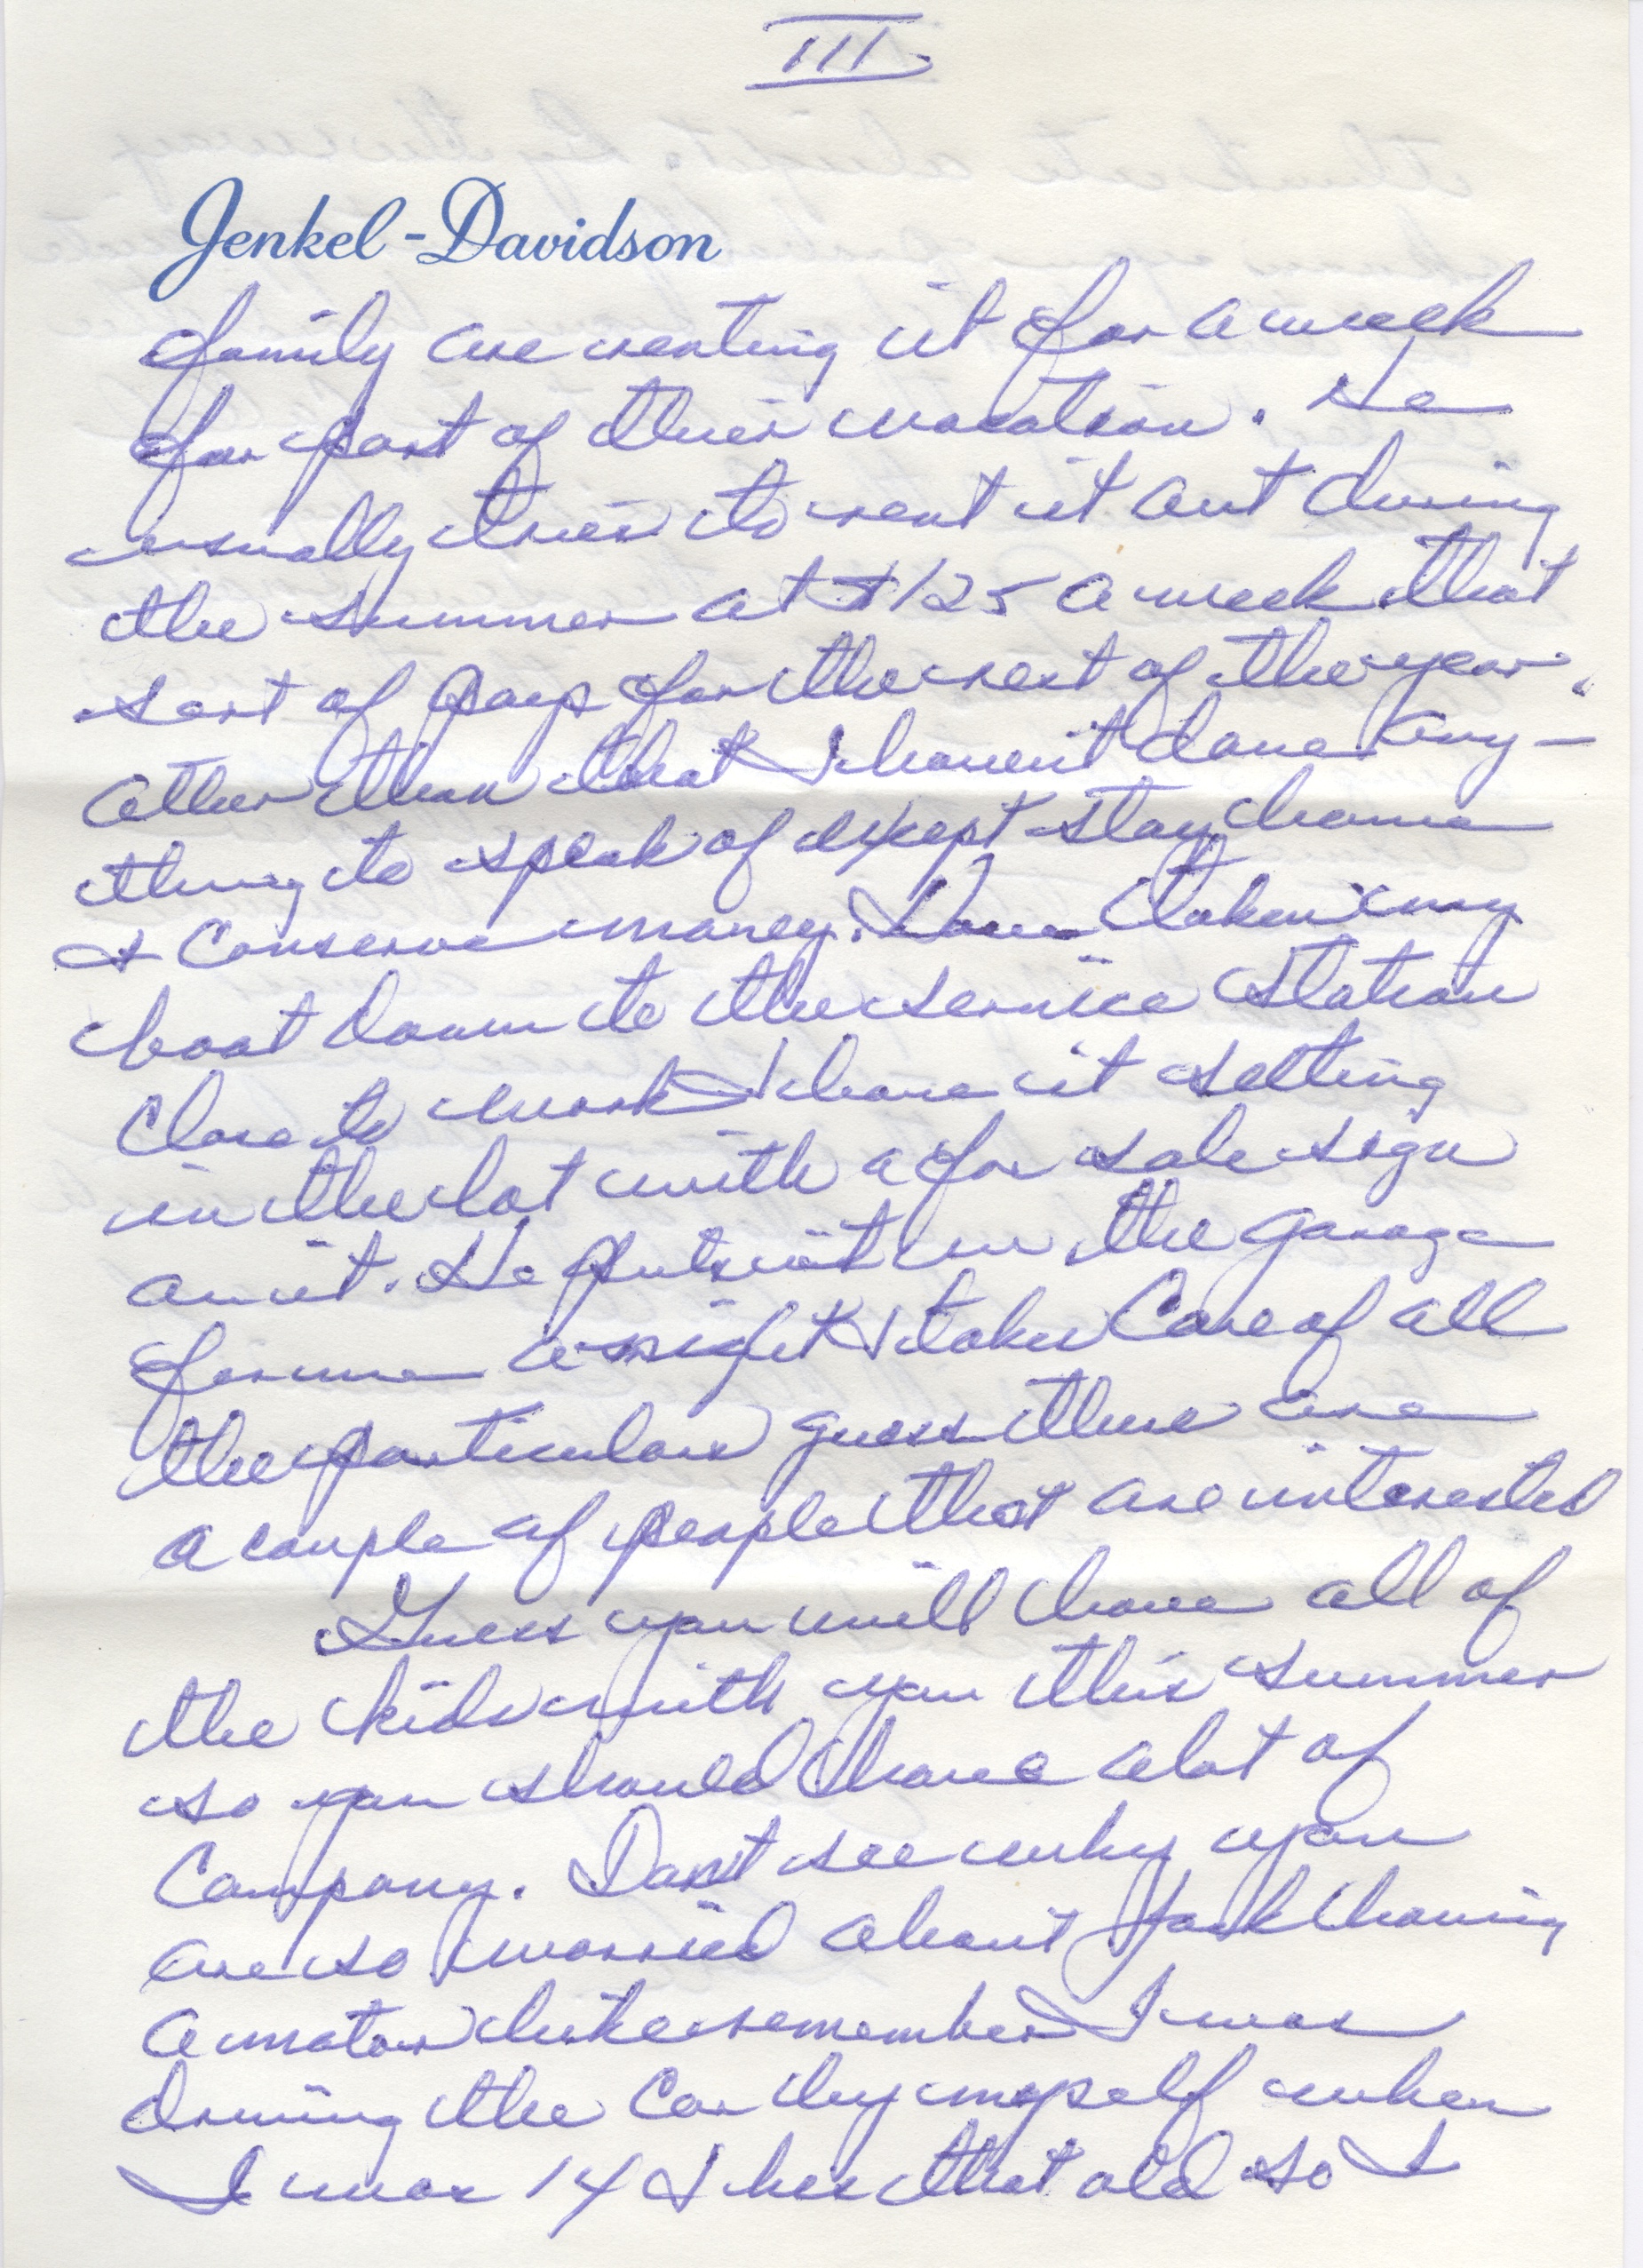 III
Jenkel-Davidson
family are renting it for a week
for part of their vacation. He
usually tries to rent it out during
the summer at $125 a week that
sort of pays for the rest of the year.
other than that I haven't done any-
thing to speak of except stay home
& conserve money. Have taken my
boat down to the service station
close to work & have it setting
in the lot with a for sale sign
on it. He puts it in the garage
for me a night & takes care of all
the particulars guess there are
a couple of people that are interested
Guess you will have all of
the kids with you this summer
so you should have alot of
Company. Don't see why you
are so worried about Jack having
a motor bike remember I was
driving the car by myself when
I was 14 & hes that old so I